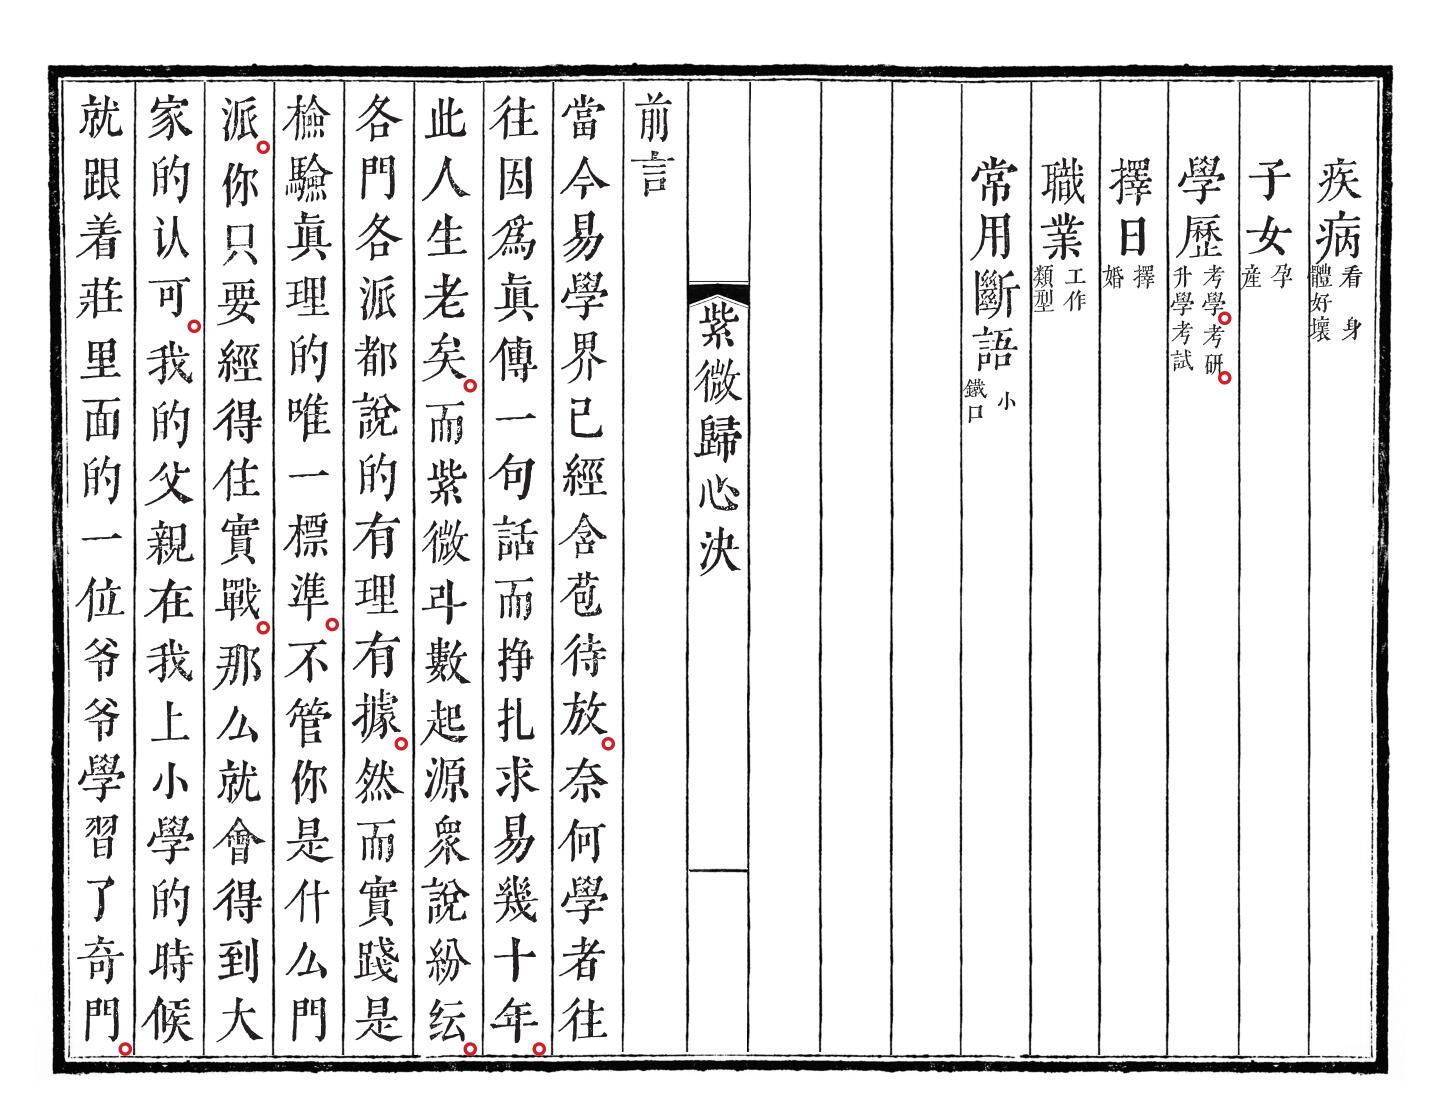 疾病看身體好壞
子女孕產
學歷考學。考研。升學考試
擇日擇婚
職業工作類型
常用斷語小鐵口
紫微歸心決
前言
當今易學界已經含苞待放。奈何學者往
往因爲真傳一句話而掙扎求易幾十年。
此人生老矣。而紫微斗數起源衆說紛纭。
各門各派都說的有理有據。然而實踐是
檢驗真理的唯一標準。不管你是什么門
派。你只要經得住實戰。那么就會得到大
家的认可。我的父親在我上小學的時候
就跟着莊里面的一位爷爷學習了奇門。